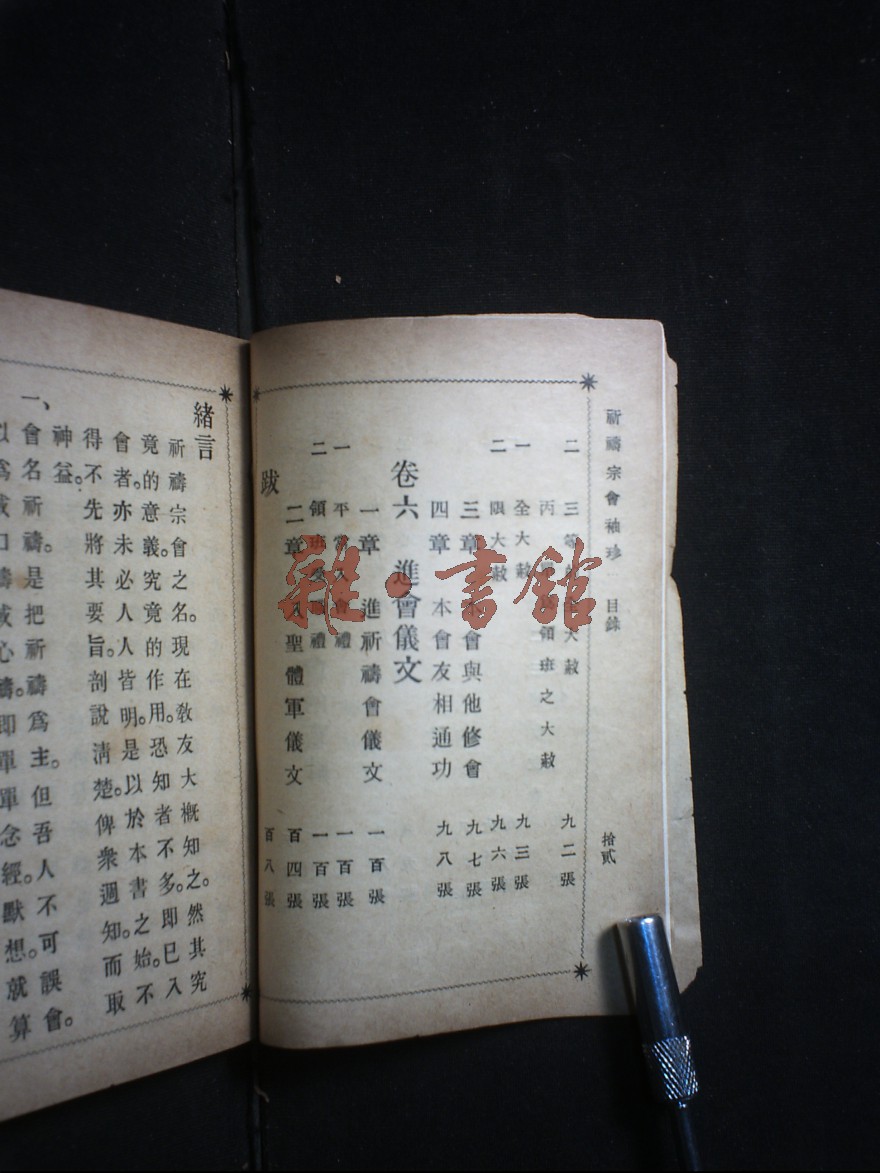 祈禱宗會袖珍 目錄 拾貳
二 三等 大赦
丙 領班之大赦 九二張
一 全大赦 九三張
二 限大赦 九六張
三章 本會與他修會 九七張
四章 本會友相通功 九八張
卷六 進會儀文
一章 進祈禱會儀文 一百張
一 平常入會禮 一百張
二 領班 禮 一百張
二章 入聖體軍儀文 百四張
跋 百八張
緒言
祈禱宗會之名。現在教友大概知之。然其究
竟的意義。究竟的作用。恐知者不多。即已入
會者。亦未必人人皆明。是以於本書之始。不
得不先將其要旨。剖說清楚。俾衆週知。而取
神益。
一、會名祈禱。是把祈禱爲主。但吾人不可誤會。
以爲或口禱或心禱。即單單念經。默想。就算
雜·書館